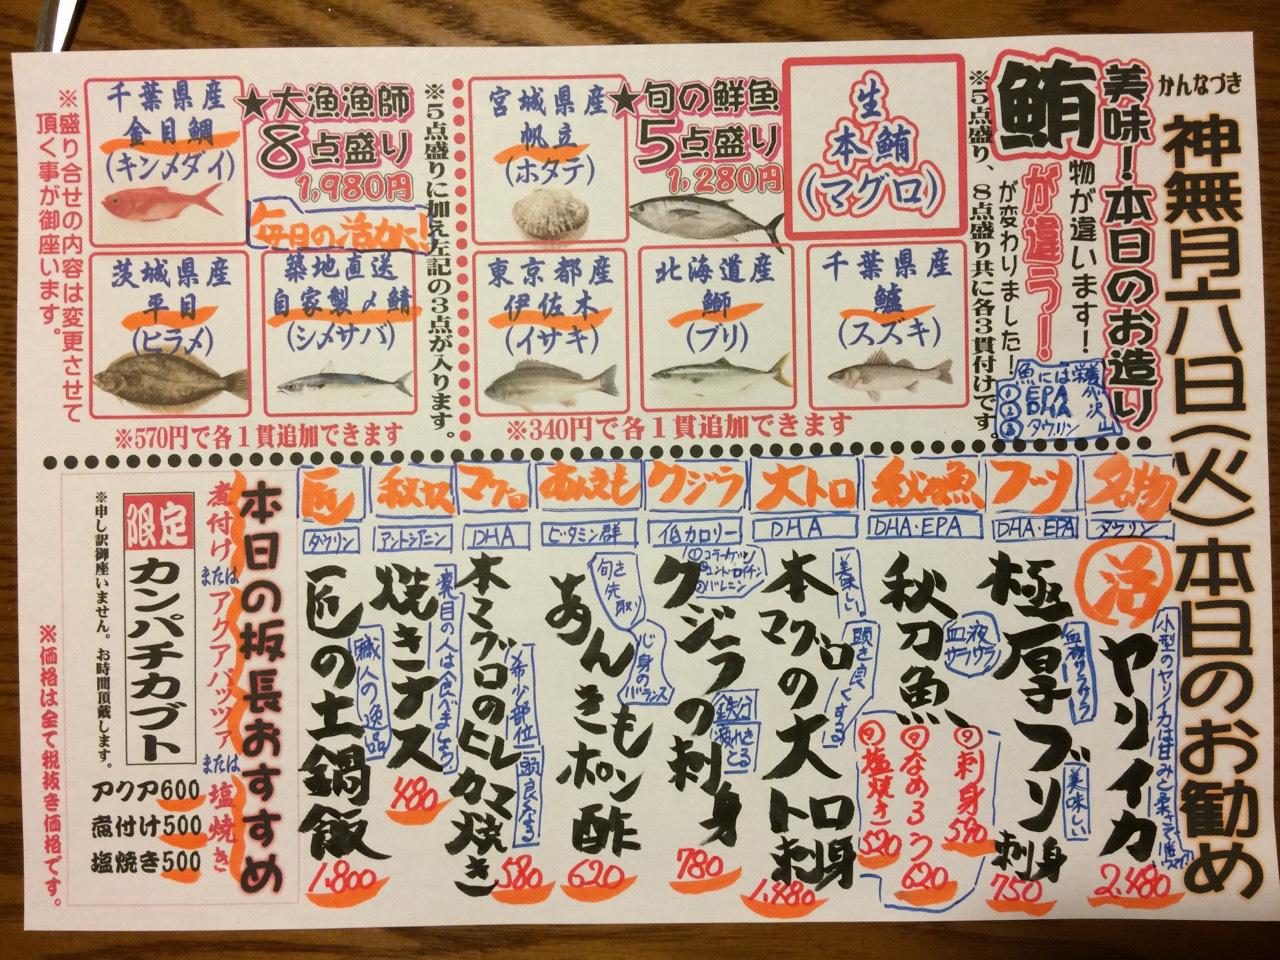 かんなづき
神無月六日(火)本日のお勧め
美味!本日のお造り
鮪が違う!
物が違います!
が変わりました!
※5点盛り、8点盛り共に各3貫付けです。
魚には栄養が沢山
① EPA
② DHA
③ タウリン
生
本鮪
(マグロ)
★旬の鮮魚
5点盛り
1,280円
宮城県産
帆立
(ホタテ)
千葉県産
鱸
(スズキ)
北海道産
鰤
(ブリ)
東京都産
伊佐木
(イサキ)
※340円で各1貫追加できます
※5点盛りに加え左記の3点が入ります。
★大漁漁師
8点盛り
1,980円
毎日の活力に!
千葉県産
金目鯛
(キンメダイ)
築地直送
自家製〆鯖
(シメサバ)
茨城県産
平目
(ヒラメ)
※570円で各1貫追加できます
※盛り合せの内容は変更させて
頂く事が御座います。
名物
タウリン
活ヤリイカ
2,480
ブツ
DHA・EPA
極厚ブリ刺身
血液サラサラ
美味しい
750
秋刀魚
DHA・EPA
秋刀魚
血液サラサラ
刺身590
なめろう620
塩焼き520
大トロ
DHA
本マグロの大トロ刺身
美味しい
頭を良くする
1,480
クジラ
低カロリー
クジラの刺身
鉄分
疲れをとる
780
あんきも
ビタミン群
あんきもポン酢
旬を先取り
心身のバランス
620
マグロ
DHA
本マグロのヒレカマ焼き
希少部位
頭良くなる
580
秋茄
アントシアニン
焼きナス
疲れ目の人は食べましょう
480
匠
タウリン
匠の土鍋飯
職人の逸品
1,800
本日の板長おすすめ
煮付けまたはアクアパッツァまたは塩焼き
限定
カンパチカブト
※申し訳御座いません。お時間頂戴します。
アクア600
煮付け500
塩焼き500
※価格は全て税抜き価格です。